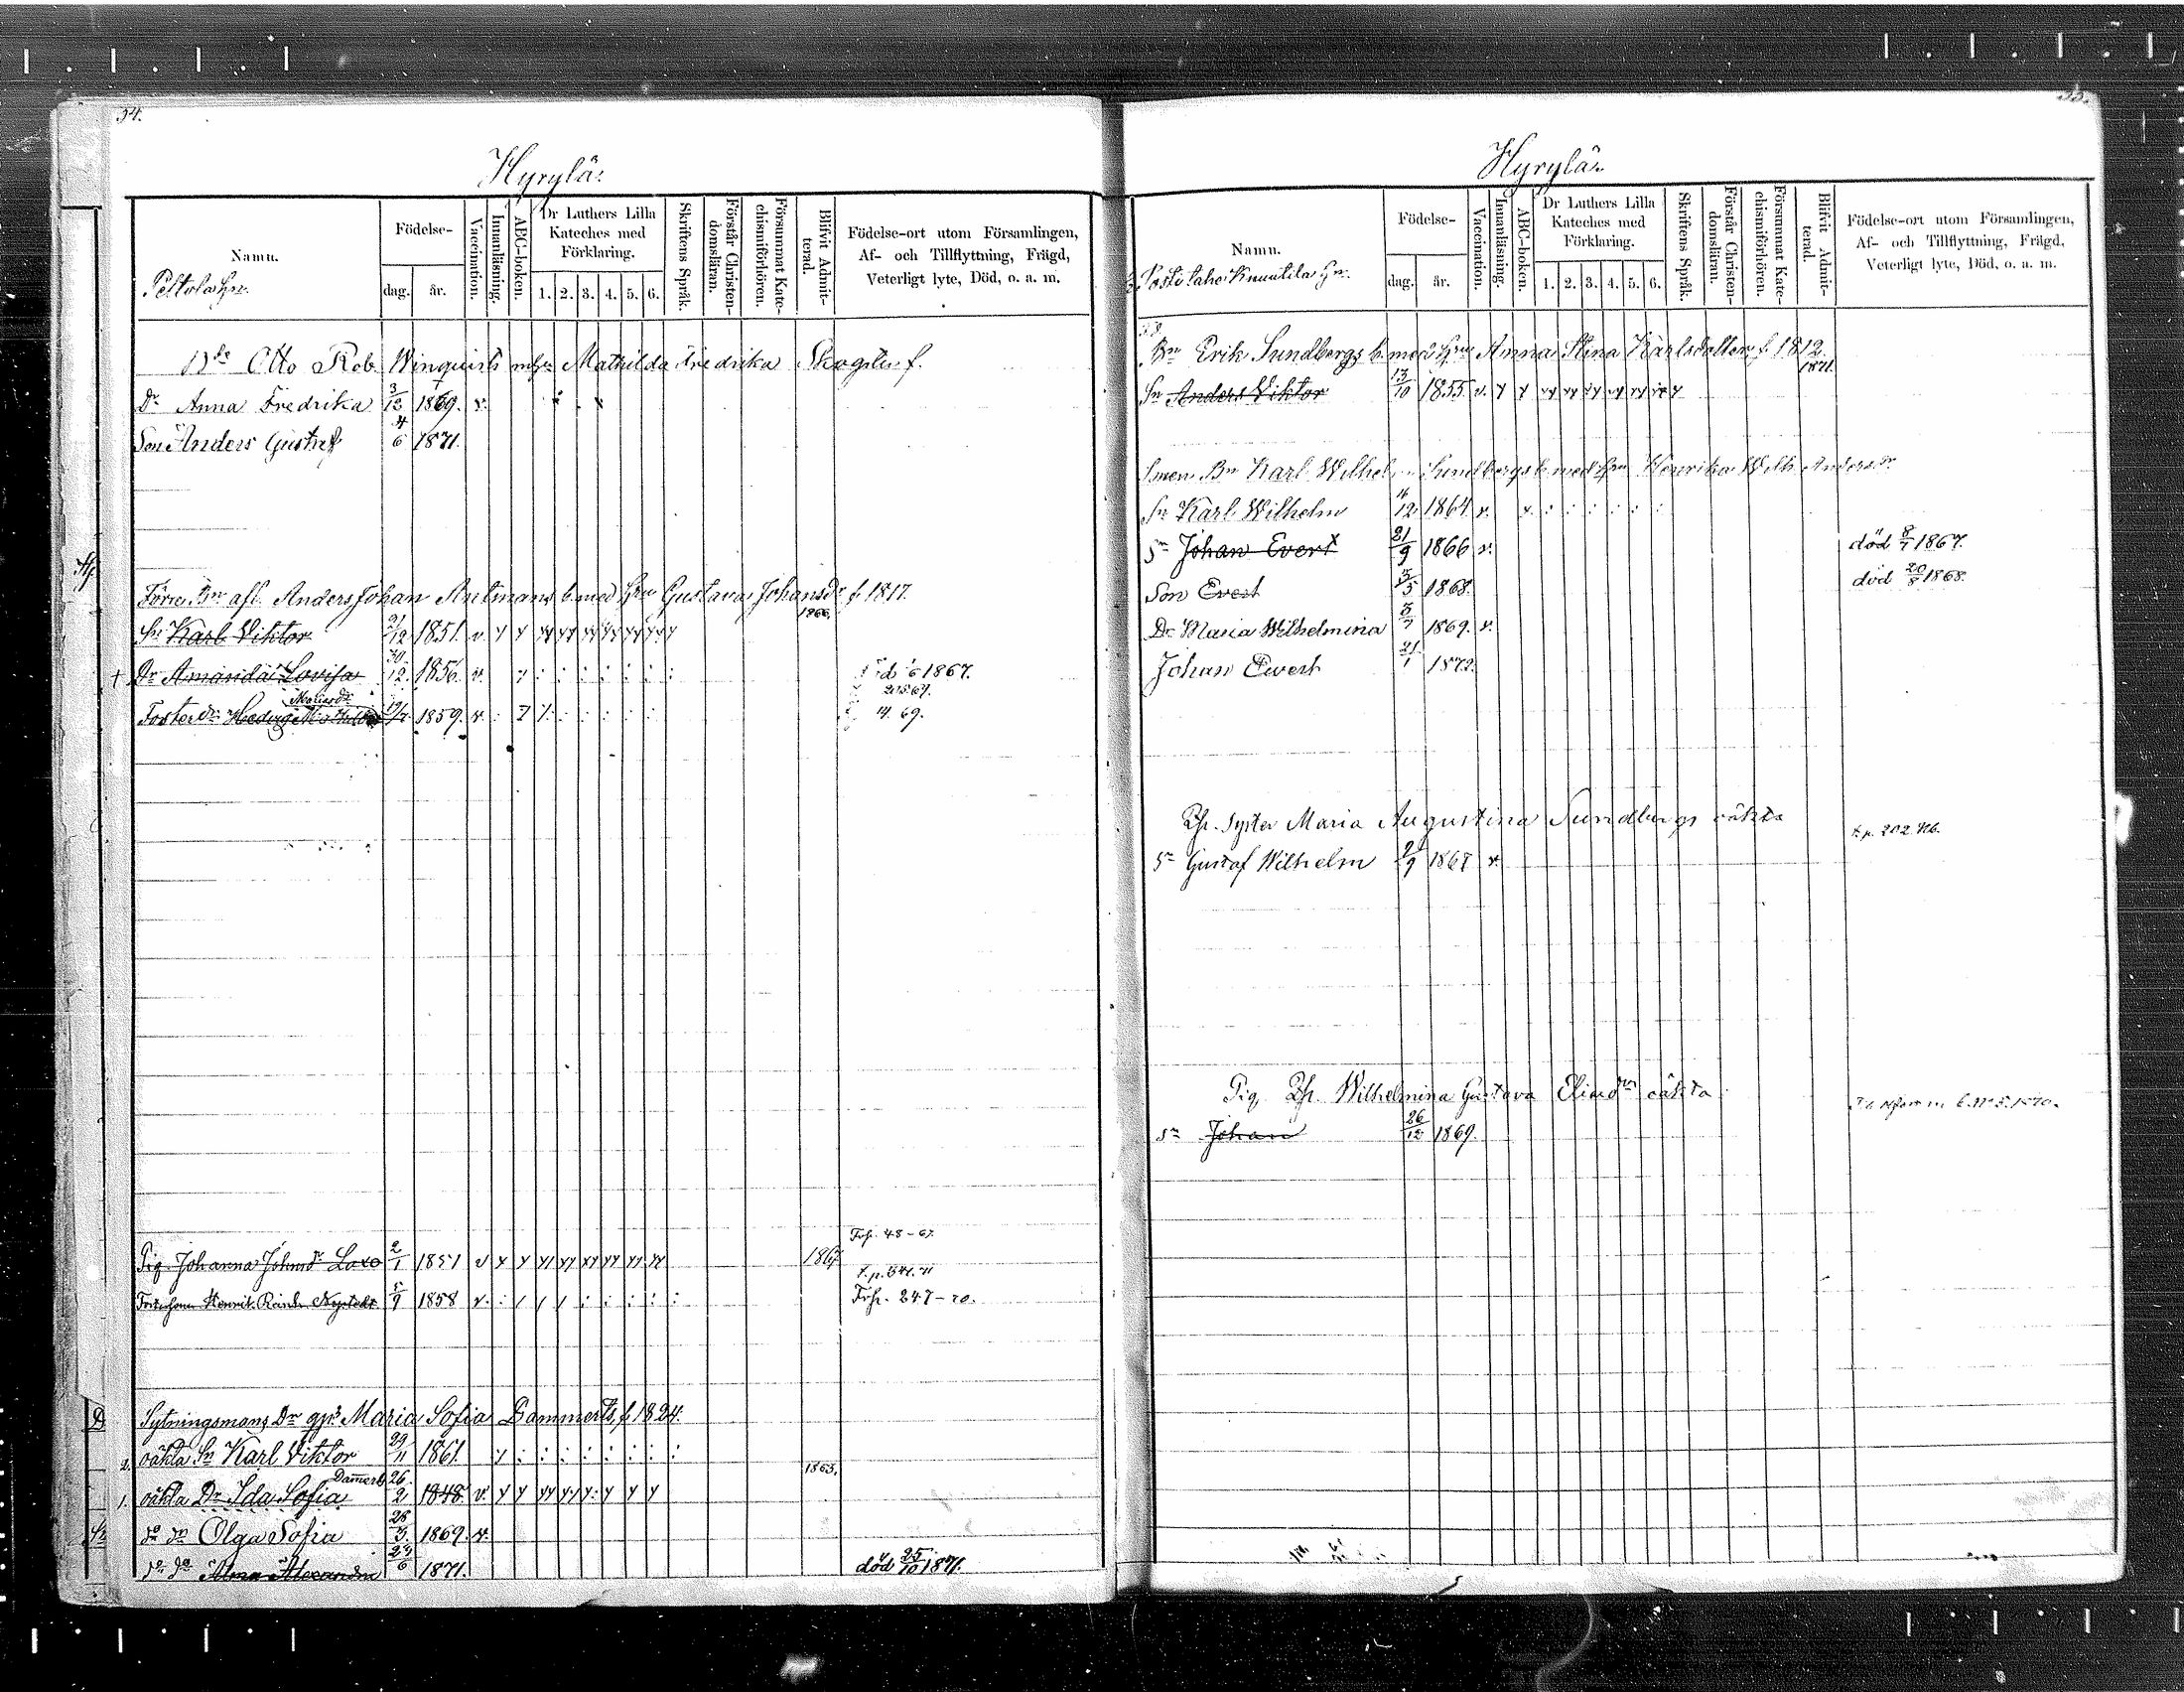 34.
Hyrylä.
Namn.
Peltola Hn.
Födelse-
dag.
år.
Vaccination.
Innanläsning.
ABC-boken.
Dr Luthers Lilla Kateches med Förklaring.
1. 2. 3. 4. 5. 6.
Skriftens Språk.
Förstår Christen-domsläran.
Försummat Kate-chismiförhören.
Blifvit Admit-terad.
Födelse-ort utom Församlingen, Af- och Tillflyttning, Frägd, Veterligt lyte, Död, o. a. m.
Otto Rob. Winquists Mathilda Fredrika f.
Dr Anna Fredrika 3/12 1869. v.
Son Anders Gustaf 4/6 1871.
Förre Bn afl. Anders Johan Antmans b. med Hru Gustava Johansdr f 1817.
1866.
Sn Karl Viktor 21/12 1851. v. y y yy yy yy yy yy yy y
Dr Amanda Lovisa 30/12 1856. v. 6 1867.
Foster dr Hedvig Mathilda 19/7 1859. v. 14. 69.
Frfr. 48-67.
Pig. Johanna Johnsdr Laxo 2/1 1851 v y y yy yy yy yy yy yy 1867
t.p. 541. 71
Fosterson Henrik Reinh. Nystedt 5/9 1858 v. Frfr. 247-70.
Sytningsmans Dr Maria Sofia Dammerts, f 1824.
2. oäkta Sn Karl Viktor 29/11 1861.
Dammert
1863.
1. oäkta Dr Ida Sofia 26/2 1848. v. y y yy yy y: y y y
do Dr Olga Sofia 28/3 1869. v.
do do Alma Alexandra 27/6 1871. död 25/10 1871.
35.
Hyrylä.
Namn.
Knuutila Hn.
Födelse-
dag.
år.
Vaccination.
Innanläsning.
ABC-boken.
Dr Luthers Lilla Kateches med Förklaring.
1. 2. 3. 4. 5. 6.
Skriftens Språk.
Förstår Christen-domsläran.
Försummat Kate-chismiförhören.
Blifvit Admit-terad.
Födelse-ort utom Församlingen, Af- och Tillflyttning, Frägd, Veterligt lyte, Död, o. a. m.
Bn Erik Sundbergs b. med Hru Anna Stina Karlsdotter, f 1812.
1871.
Sn Anders Viktor 13/10 1855 v. y y yy yy yy yy yy yy y
Bn Karl Wilhelm Sundbergs b. med Hru Henrika Wilh. Andersdr
Sn Karl Wilhelm 14/12 1864 v.
Sn Johan Evert 21/9 1866 v. död 8/7 1867.
Son Evert 5/5 1868. död 20/8 1868.
Dr Maria Wilhelmina 5/7 1869. v.
Johan Evert 21/1 1872.
Syster Maria Augustina Sundbergs oäkta
t.p. 202.
Sn Gustaf Wilhelm 21/9 1868 v.
Pig. Wilhelmina Gustava Eliasdrs oäkta
Sn Johan 26/12 1869.